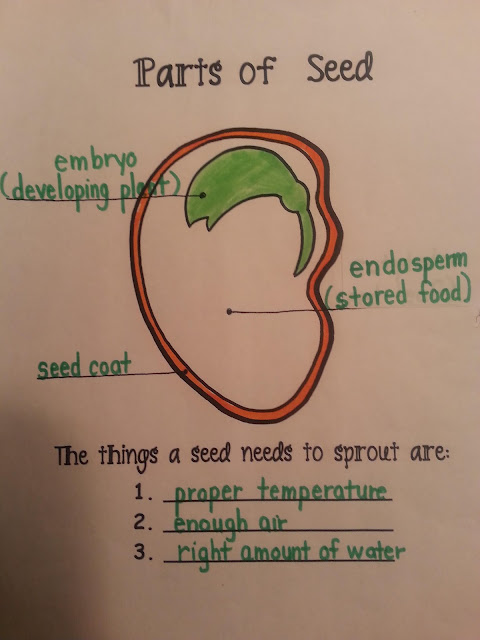 Parts of Seed
embryo
(developing plant)
endosperm
(stored food)
seed coat
The things a seed needs to sprout are:
1. proper temperature
2. enough air
3. right amount of water